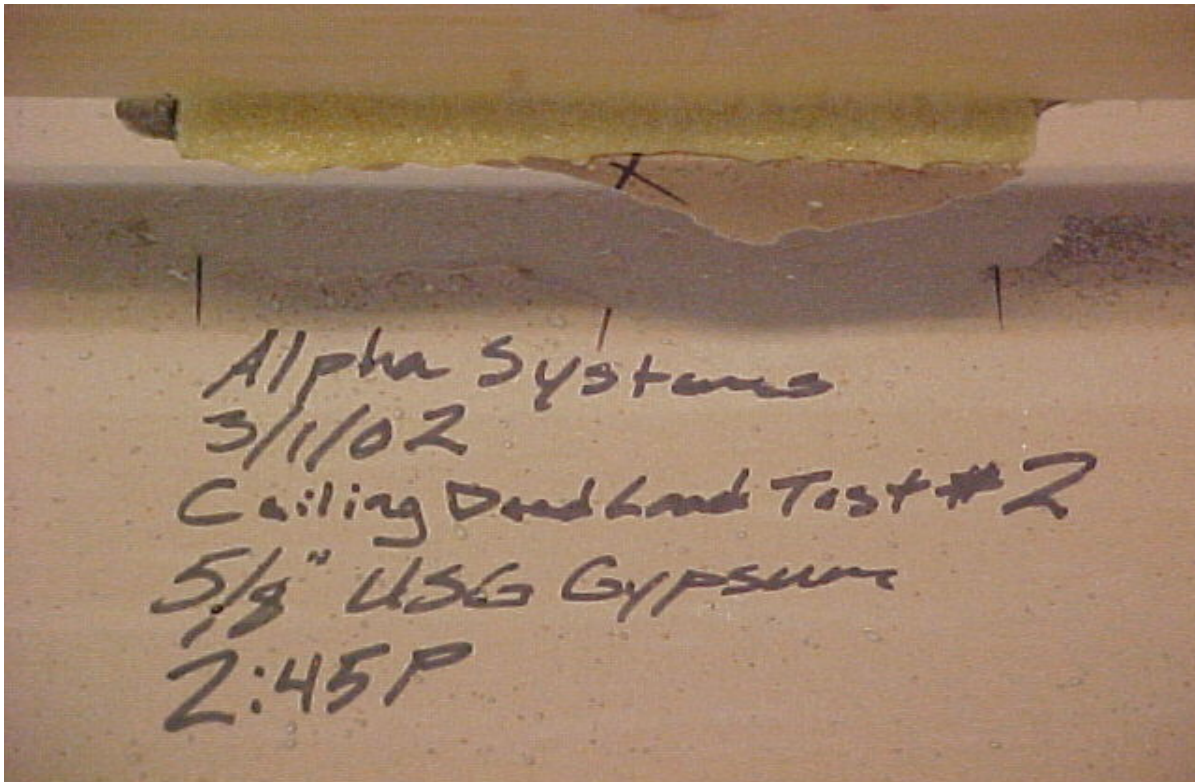 Alpha Systems
3/1/02
Ceiling Dead Load Test #2
5/8" USG Gypsum
2:45P